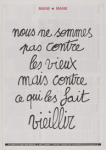 MANIF ★ MANIF
nous ne sommes
pas contre
les vieux
mais contre
ce qui les fait
vieillir